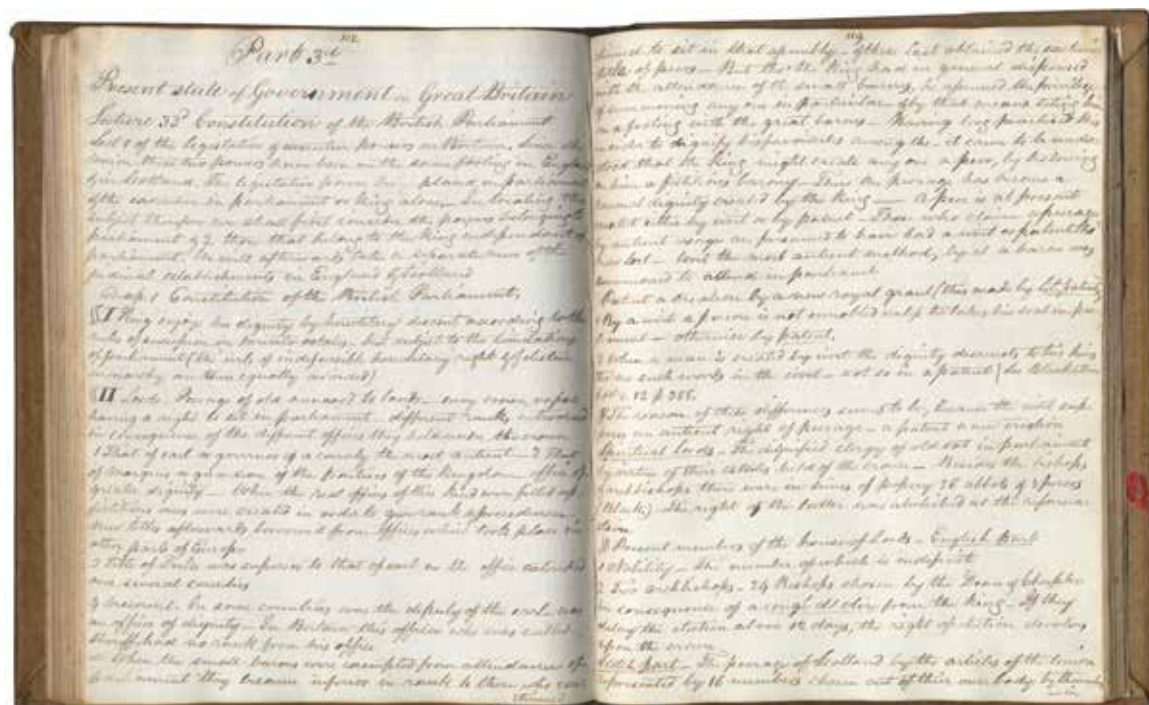 112
Part 3d
Present state of Government in Great Britain
Lecture 33d Constitution of the British Parliament
Sect 1 of the legislative & executive powers in Britain, Since the
union these two powers have been on the same footing in England
& in Scotland. The legislative power is placed in parliament
& the executive in parliament or King alone. In treating this
subject therefore we shall first consider the powers belonging to
parliament & 2 those that belong to the King independent of
parliament. We will afterwards take a separate view of the
judicial establishments in England & Scotland
Chap. 1 Constitution of the British Parliament.
§ I King enjoys his dignity by hereditary descent according to the
rules of succession in private estates, but subject to the limitations
of parliament (the evils of indefeasible hereditary right & of elective
monarchy are thus equally avoided)
§ II Lords. Peerage of old annexed to lands – every crown vassal
having a right to sit in parliament – different ranks introduced
in consequence of the different offices they held under the crown
1 That of earl or governor of a county the most antient – 2 That
of marquis a guardian of the frontiers of the kingdom – office of
greater dignity – When the real offices of this kind were filled up
fictitious ones were created in order to give rank & precedence
new titles afterwards borrowed from offices which took place in
other parts of Europe
3 Title of Duke was superior to that of earl as the office extended
over several counties
4 Viscount. In some countries was the deputy of the earl & was
an office of dignity – In Britain this officer who was called
Sheriff had no rank from his office
– When the small barons were exempted from attendance in
parliament they became inferior in rank to those who con
tinued
119
tinued to sit in that assembly – & these last obtained the exclusive
title of peers – But tho the King had in general dispensed
with the attendance of the small barons, he assumed the privilege
of summoning any one in particular & by that means setting him
on a footing with the great barons – Having long practised this
in order to dignify it came to be under
stood that the King might create any one a peer, by bestowing
on him a fictitious barony – Thus the peerage has become a
personal dignity created by the King – A peer is at present
created either by writ or by patent – Those who claim a peerage
by antient usage are presumed to have had a writ or patent tho
now lost – Writ the most antient method, by it a baron was
summoned to attend in parliament
Patent a creation by a new royal grant (this made by
1 By a writ a person is not ennobled until he takes his seat in par
liament – otherwise by patent.
2 When a man is created by writ the dignity descends to his heirs
tho no such words in the writ – not so in a patent (See Blackstone
12 p
The reason of these differences seems to be, because the writ sup
poses an antient right of peerage – a patent a new creation
Spiritual lords – The dignified clergy of old sat in parliament
by virtue of their estates held of the crown – Besides the bishops
& archbishops there were in times of popery 26 abbots & 2 priors
(Black) – the right of the latter was abolished at the reforma
tion
Present members of the house of Lords – English Part
1 Nobility – The number of which is indefinite
2 Two archbishops – 24 Bishops chosen by the Dean & Chapter
in consequence of a congé d'elire from the King – If they
delay the election above 12 days, the right of election devolves
upon the crown
Scotch part – The peerage of Scotland by the articles of the union
represented by 16 members chosen out of their own body by